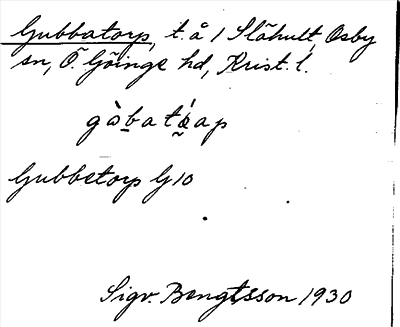 Gubbatorp, t. å 1 Slähult, Osby
sn, Ö. Göinge hd, Krist. l.
Gubbetorp G 10
Sigv. Bengtsson 1930